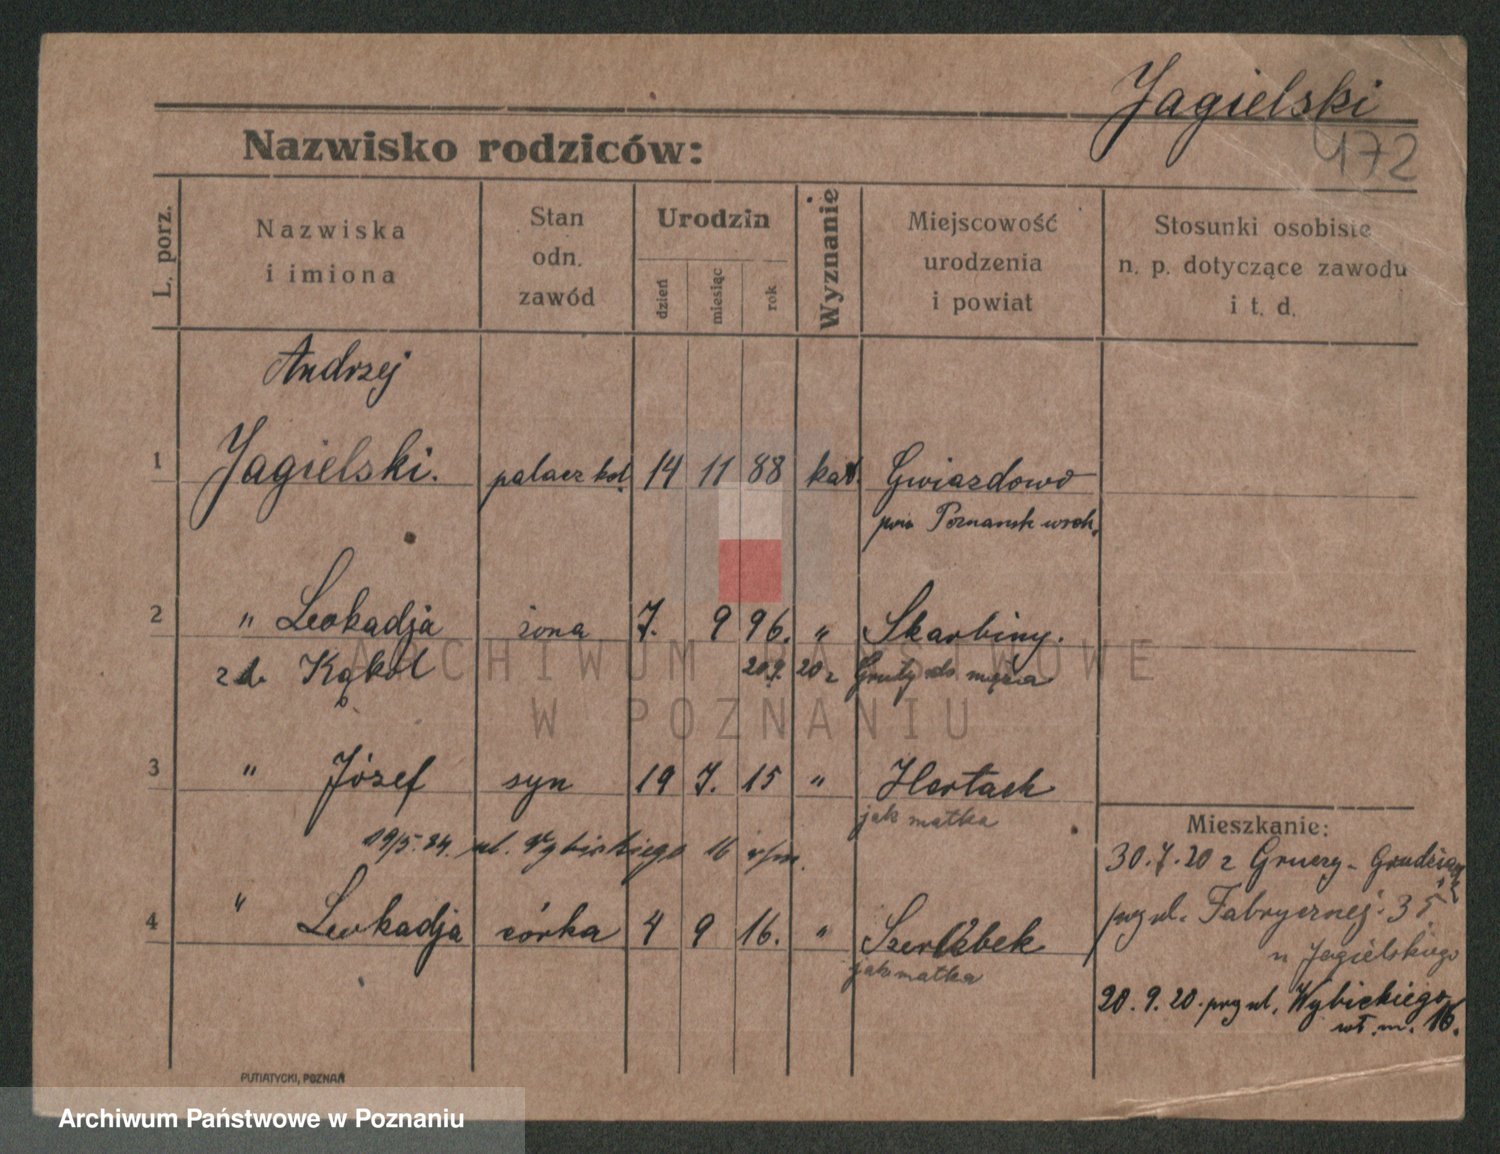 Jagielski
472
Nazwisko rodziców:
L. porz.
Nazwiska
i imiona
Stan
odn.
zawód
Urodzin
dzień
miesiąc
rok
Wyznanie
Miejscowość
urodzenia
i powiat
Stosunki osobiste
n. p. dotyczące zawodu
i t. d.
Andrzej
1 Jagielski. palacz kol. 14 11 88 kat. Gwiazdowo
pow Poznansk wsch.
2 " Leokadja żona 7. 9 96. " Skarbiny.
z d. Kąkol 20.9. 20 z Gruty do męża
3 " Józef syn 19 7. 15 " Hertach
jak matka
19/5. 24. ul. Wybickiego 16
4 " Leokadja córka 4 9 16. "
jak matka
Mieszkanie:
30.7.20 z Gruczy - Grudziądz
przy ul. Fabrycznej 35
u Jagielskiego
20.9.20. przy ul. Wybickiego
m. 16.
PUTIATYCKI, POZNAŃ
ARCHIWUM PAŃSTWOWE
W POZNANIU
Archiwum Państwowe w Poznaniu